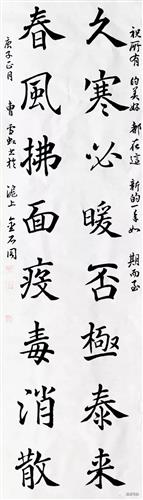 祝所有的美好都在這新的一年如期而至
久寒必暖否極泰来
春風拂面疫毒消散
庚子正月曹雪虹書於滬上金石閣